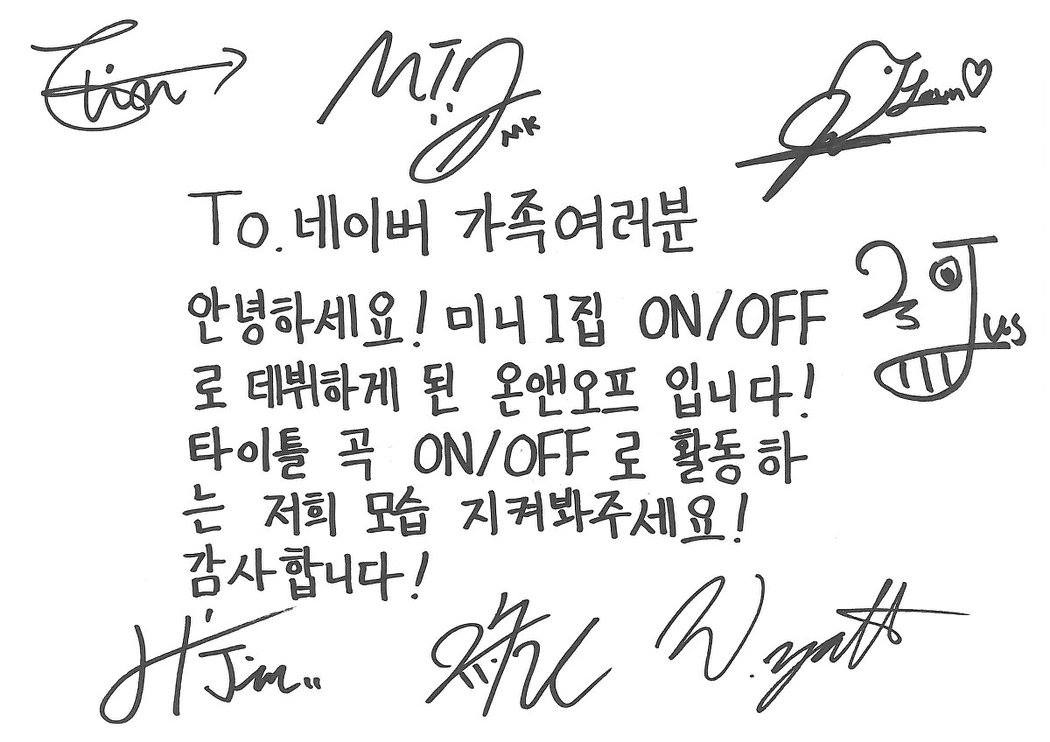 MK
To. 네이버 가족여러분
안녕하세요! 미니 1집 ON/OFF
로 데뷔하게 된 온앤오프 입니다!
타이틀 곡 ON/OFF로 활동하
는 저희 모습 지켜봐주세요!
감사합니다!
U.S
Wyatt